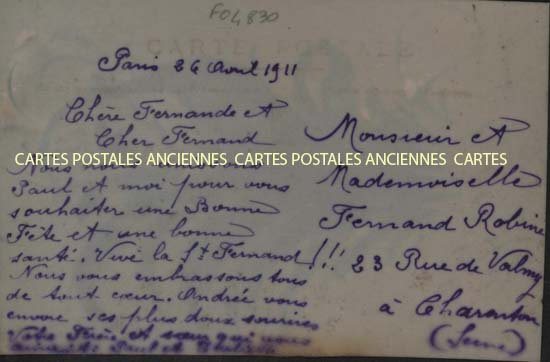 F04830
CARTE POSTALE
Paris 26 Aout 1911
Chère Fernande et
Cher Fernand
CARTES POSTALES ANCIENNES CARTES POSTALES ANCIENNES CARTES
Nous
Paul et moi pour vous
souhaiter une Bonne
Fête et une bonne
santé. Vive la St Fernand !!!
Nous vous embrassons tous
de tout cœur. Andrée vous
envoie ses plus doux sourires
Votre Frère et sœur qui vous
Monsieur et
Mademoiselle
Fernand Robine
23 Rue de Valmy
à Charenton
(Seine)